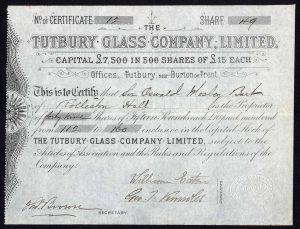 No. OF CERTIFICATE 12 SHARE 49
THE
TUTBURY GLASS COMPANY, LIMITED,
CAPITAL £7,500 IN 500 SHARES OF £15 EACH
Offices, Tutbury, near Burton on Trent.
This is to Certify that Sir Oswald Mosley Bart
of Rolleston Hall is the Proprietor
of Shares of Fifteen Pounds each numbered
from 112 to 160 inclusive in the Capital Stock of
THE TUTBURY GLASS COMPANY, LIMITED, subject to the
Articles of Association and the Rules and Regulations of the
Company.
William
SECRETARY.